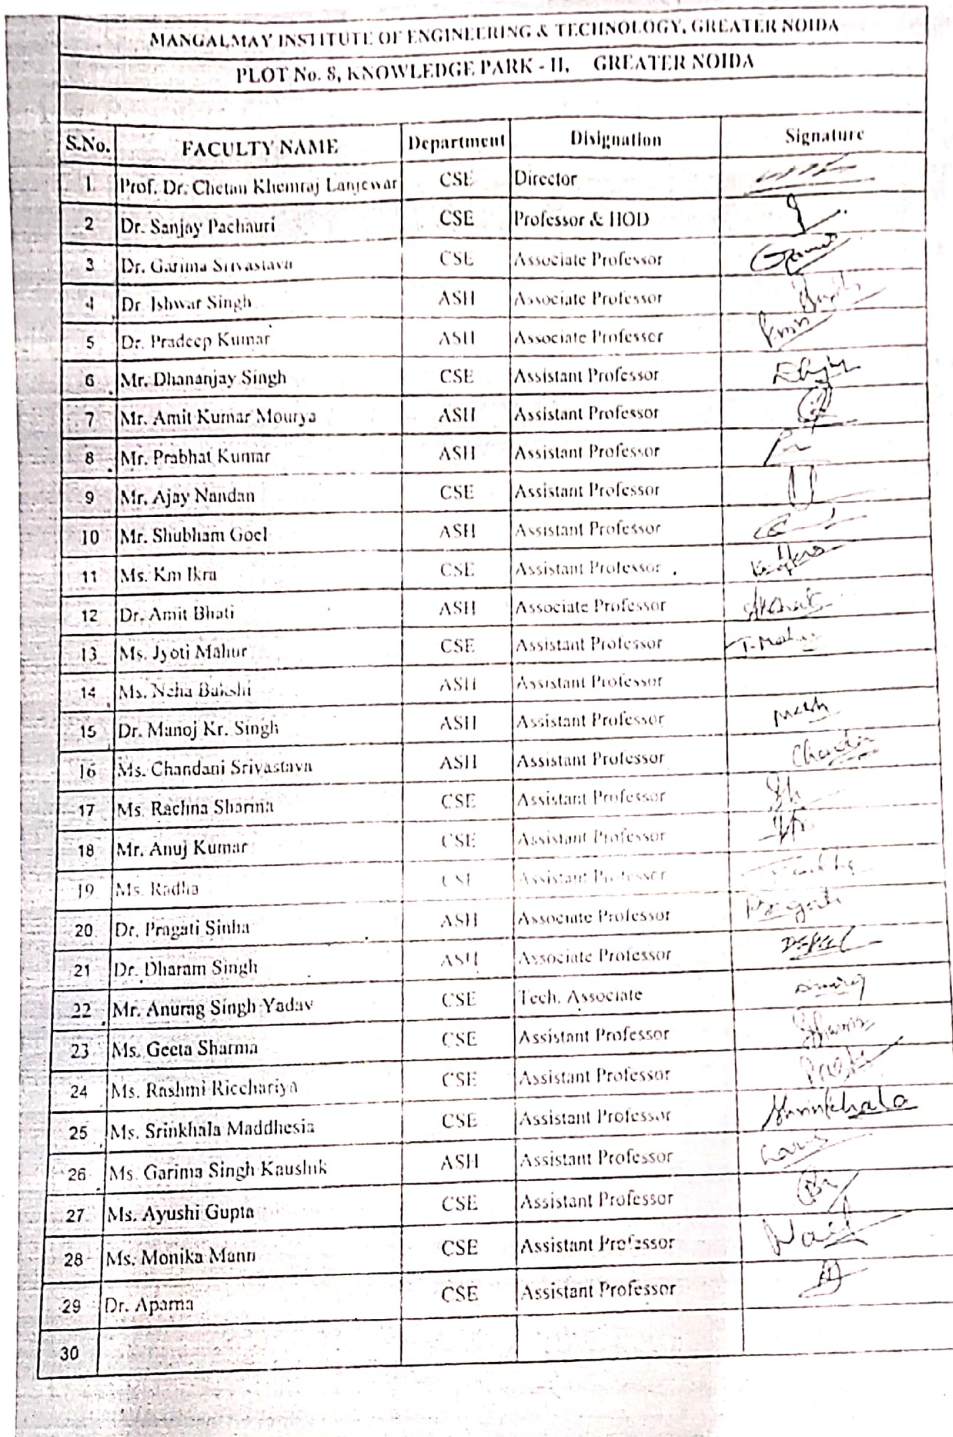 MANGALMAY INSTITUTE OF ENGINEERING & TECHNOLOGY, GREATER NOIDA
PLOT No. 8, KNOWLEDGE PARK - II, GREATER NOIDA
S.No. FACULTY NAME Department Disignation Signature
1 Prof. Dr. Chetan Khemraj Lanjewar CSE Director
2 Dr. Sanjay Pachauri CSE Professor & HOD
3 Dr. Garima Srivastava CSE Associate Professor
4 Dr. Ishwar Singh ASH Associate Professor
5 Dr. Pradeep Kumar ASH Associate Professor
6 Mr. Dhananjay Singh CSE Assistant Professor
7 Mr. Amit Kumar Mourya ASH Assistant Professor
8 Mr. Prabhat Kumar ASH Assistant Professor
9 Mr. Ajay Nandan CSE Assistant Professor
10 Mr. Shubham Goel ASH Assistant Professor
11 Ms. Km Ikra CSE Assistant Professor
12 Dr. Amit Bhati ASH Associate Professor
13 Ms. Jyoti Mahur CSE Assistant Professor
14 Ms. Neha Bakshi ASH Assistant Professor
15 Dr. Manoj Kr. Singh ASH Assistant Professor
16 Ms. Chandani Srivastava ASH Assistant Professor
17 Ms. Rachna Sharma CSE Assistant Professor
18 Mr. Anuj Kumar CSE Assistant Professor
19 Ms. Radha CSE Assistant Professor
20 Dr. Pragati Sinha ASH Associate Professor Pragati
21 Dr. Dharam Singh ASH Associate Professor
22 Mr. Anurag Singh Yadav CSE Tech. Associate
23 Ms. Geeta Sharma CSE Assistant Professor
24 Ms. Rashmi Ricchariya CSE Assistant Professor
25 Ms. Srinkhala Maddhesia CSE Assistant Professor Shrinkhala
26 Ms. Garima Singh Kaushik ASH Assistant Professor
27 Ms. Ayushi Gupta CSE Assistant Professor
28 Ms. Monika Mann CSE Assistant Professor
29 Dr. Aparna CSE Assistant Professor
30